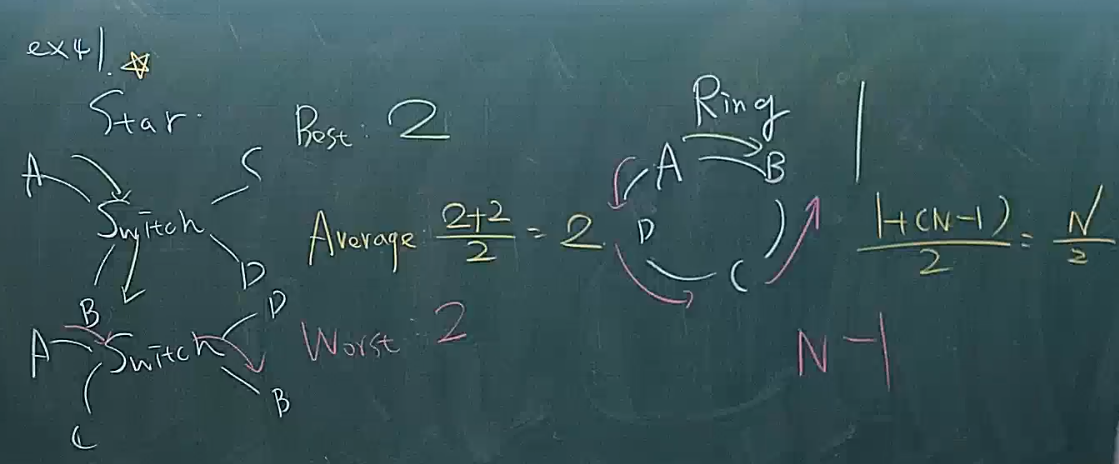 ex41. ☆
Star.
A
C
Switch
B
D
A
Switch
D
B
C
Best: 2
Average: 2+2/2 = 2
Worst: 2
Ring
A
B
D
C
1
1+(N-1)/2 = N/2
N-1